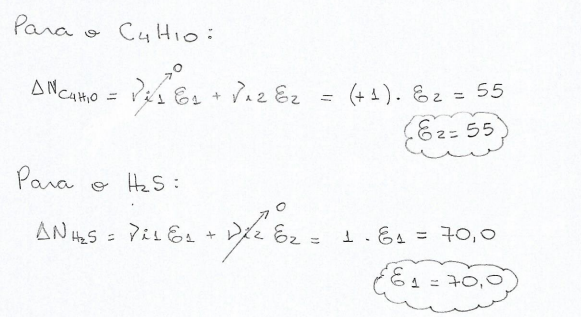 Para o C4H10:
0
ΔN C4H10 = νi1 ε1 + νi2 ε2 = (+1). ε2 = 55
ε2 = 55
Para o H2S:
0
ΔN H2S = νi1 ε1 + νi2 ε2 = 1 . ε1 = 70,0
ε1 = 70,0